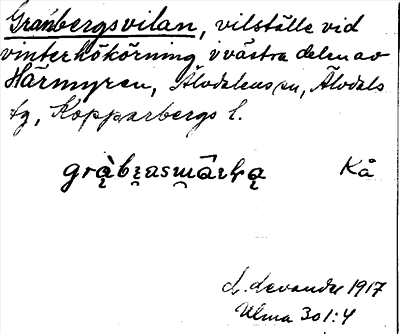 Granbergsvilan, vilställe vid
vinterhökörning i västra delen av
Härmyren, Älvdalens sn, Älvdals
tg, Kopparbergs l.
Kå
L. Levander 1917
Ulma 301:4